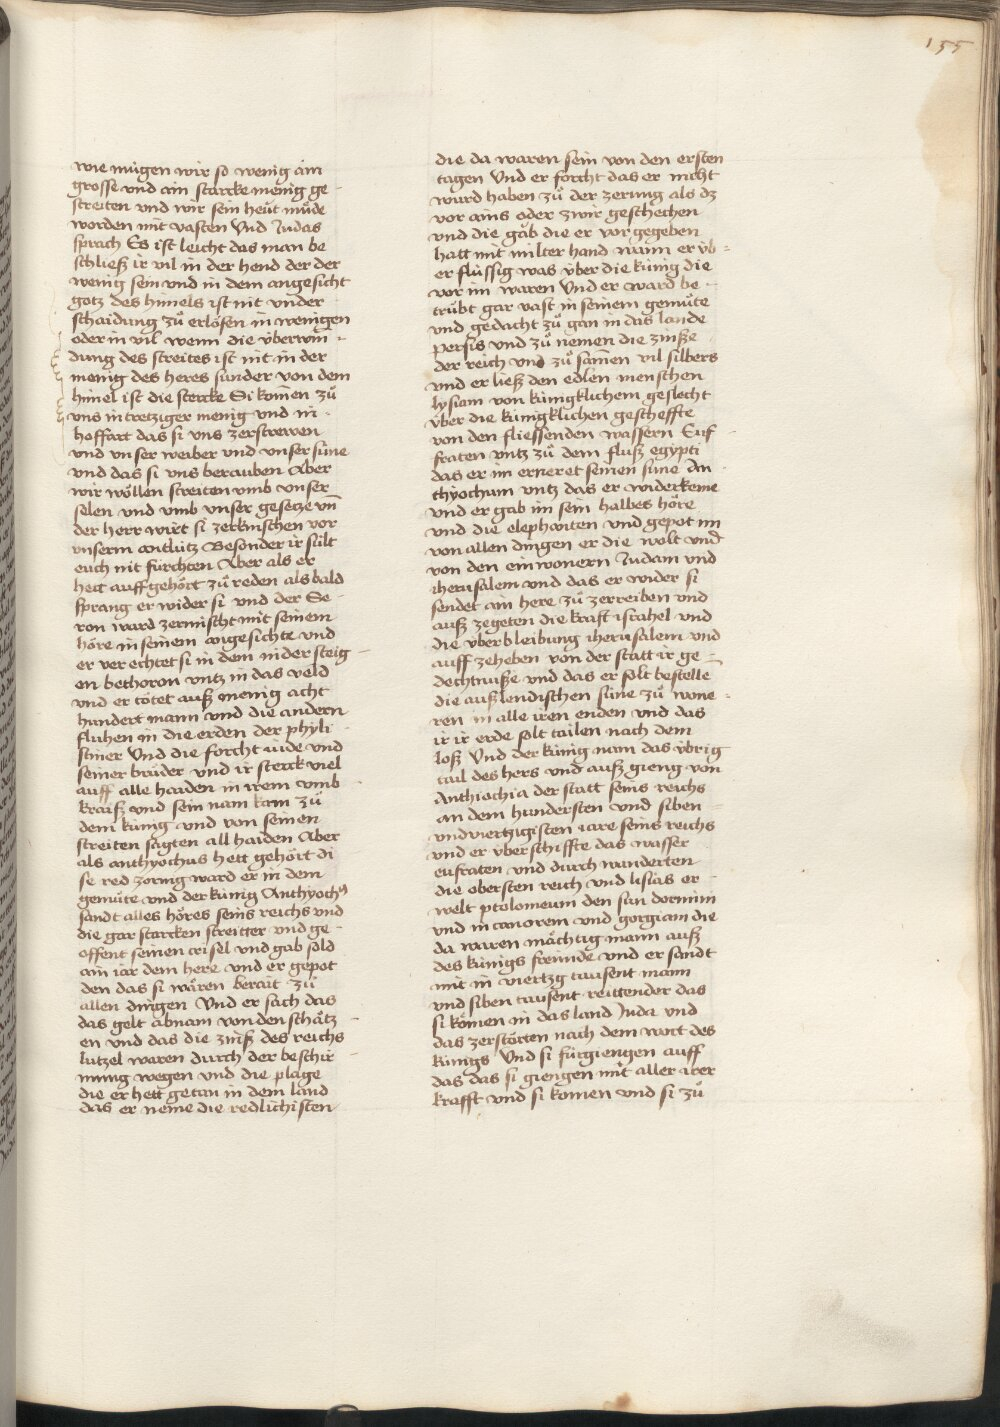 155
wie mügen wir so wenig ain
grosse vnd ain starcke menig ge-
streiten vnd wir sein heüt müde
worden mit vasten Vnd Judas
sprach Es ist leicht das man be
schließ ir vil in der hend der der
wenig sein vnd in dem angesicht
gotz des himels ist nit vnder
schaidung zů erlösen in wenigen
oder in vil wenn die v̈berwin-
dung des streites ist nit in der
menig des heres sunder von dem
himel ist die stercke Si komen zů
vns in tretziger menig vnd in-
hoffart das si vns zerstrewen
vnd vnser weiber vnd vnser süne
vnd das si vns berauben Aber
wir wöllen streiten vmb vnser
selen vnd vmb vnser gesetze vn̄
der herr wirt si zerknischen vor
vnserm antlütz Besonder ir sült
euch nit fürchten Aber als er
hett auff gehört zů reden als bald
sprang er wider si vnd der Se-
ron ward zermischt mit seinem
höre in seinem angesichte vnd
er verechtet si in dem nider steig-
en bethoron vntz in das veld
vnd er tötet auß menig acht
hundert mann vnd die andern
fluhen in die erden der phyli-
stiner Vnd die forcht iude vnd
seiner brüder vnd ir sterck viel
auff alle haiden in irem vmb
kraiß vnd sein nam kam zů
dem künig vnd von seinen
streiten sagten all haiden Aber
als anthyochus hett gehört di
se red zornig ward er in dem
gemüte vnd der künig Anthyochꝰ
sandt alles höres seins reichs vnd
die gar starcken streitter vnd ge-
offent seinen crisel vnd gab sold
ain iar dem here vnd er gepot
den das si wären berait zů
allen dingen Vnd er sach das
das gelt abnam von den schätz-
en vnd das die zinß des reichs
lutzel waren durch der beschir
mung wegen vnd die plage
die er hett getan in dem land
das er neme die redlichisten
die da waren sein von den ersten
tagen Vnd er forcht das er nicht
wurd haben zů der zerung als dz
vor ains oder zwir geschechen
vnd die gäb die er vor gegeben
hatt mit milter hand wann er v̈b-
er flüssig was v̈ber die künig die
vor im waren Vnd er ward be-
trübt gar vast in seinem gemüte
vnd gedacht zů gan in das lande
persis vnd zů nemen die zinße
der reich vnd zů samen vil silbers
vnd er ließ den edlen menschen
lysiam von künigklichem geslecht
v̈ber die künigklichen gescheffte
von den fliessenden wassern Euf
fraten vntz zů dem fluß egypti
das er im erneret seinen sune An-
thyochum vntz das er widerkeme
vnd er gab im sein halbes höre
vnd die elephanten vnd gepot im
von allen dingen er die welt vnd
von den einwonern Judam vnd
iherusalem vnd das er wider si
sendet ain here zů zerreiben vnd
auß zegeten die krafft israhel vnd
die v̈berbleibung iherusalem vnd
auff zeheben von der statt ir ge-
dechtnuße vnd das er solt bestelle
die außlendischen süne zů wone-
ren in alle iren enden vnd das
ir ir erde solt tailen nach dem
loß Vnd der künig nam das v̈brig
tail des hers vnd auß gieng von
Anthiochia der statt seins reichs
an dem hundersten vnd siben
vnd viertzigisten iare seins reichs
vnd er v̈berschiffte das wasser
eufraten vnd durch wanderten
die obersten reich vnd lisias er-
welt ptolomeum den sun dormini
vnd nicanorem vnd gorgiam die
da waren mächtig mann auß
des künigs freünde vnd er sandt
mit in viertzg tausent mann
vnd siben tausent reittender das
si kömen in das land Juda vnd
das zerstörten nach dem wort des
künigs Vnd si fürgiengen auff
das das si giengen mit aller irer
krafft vnd si komen vnd si zů